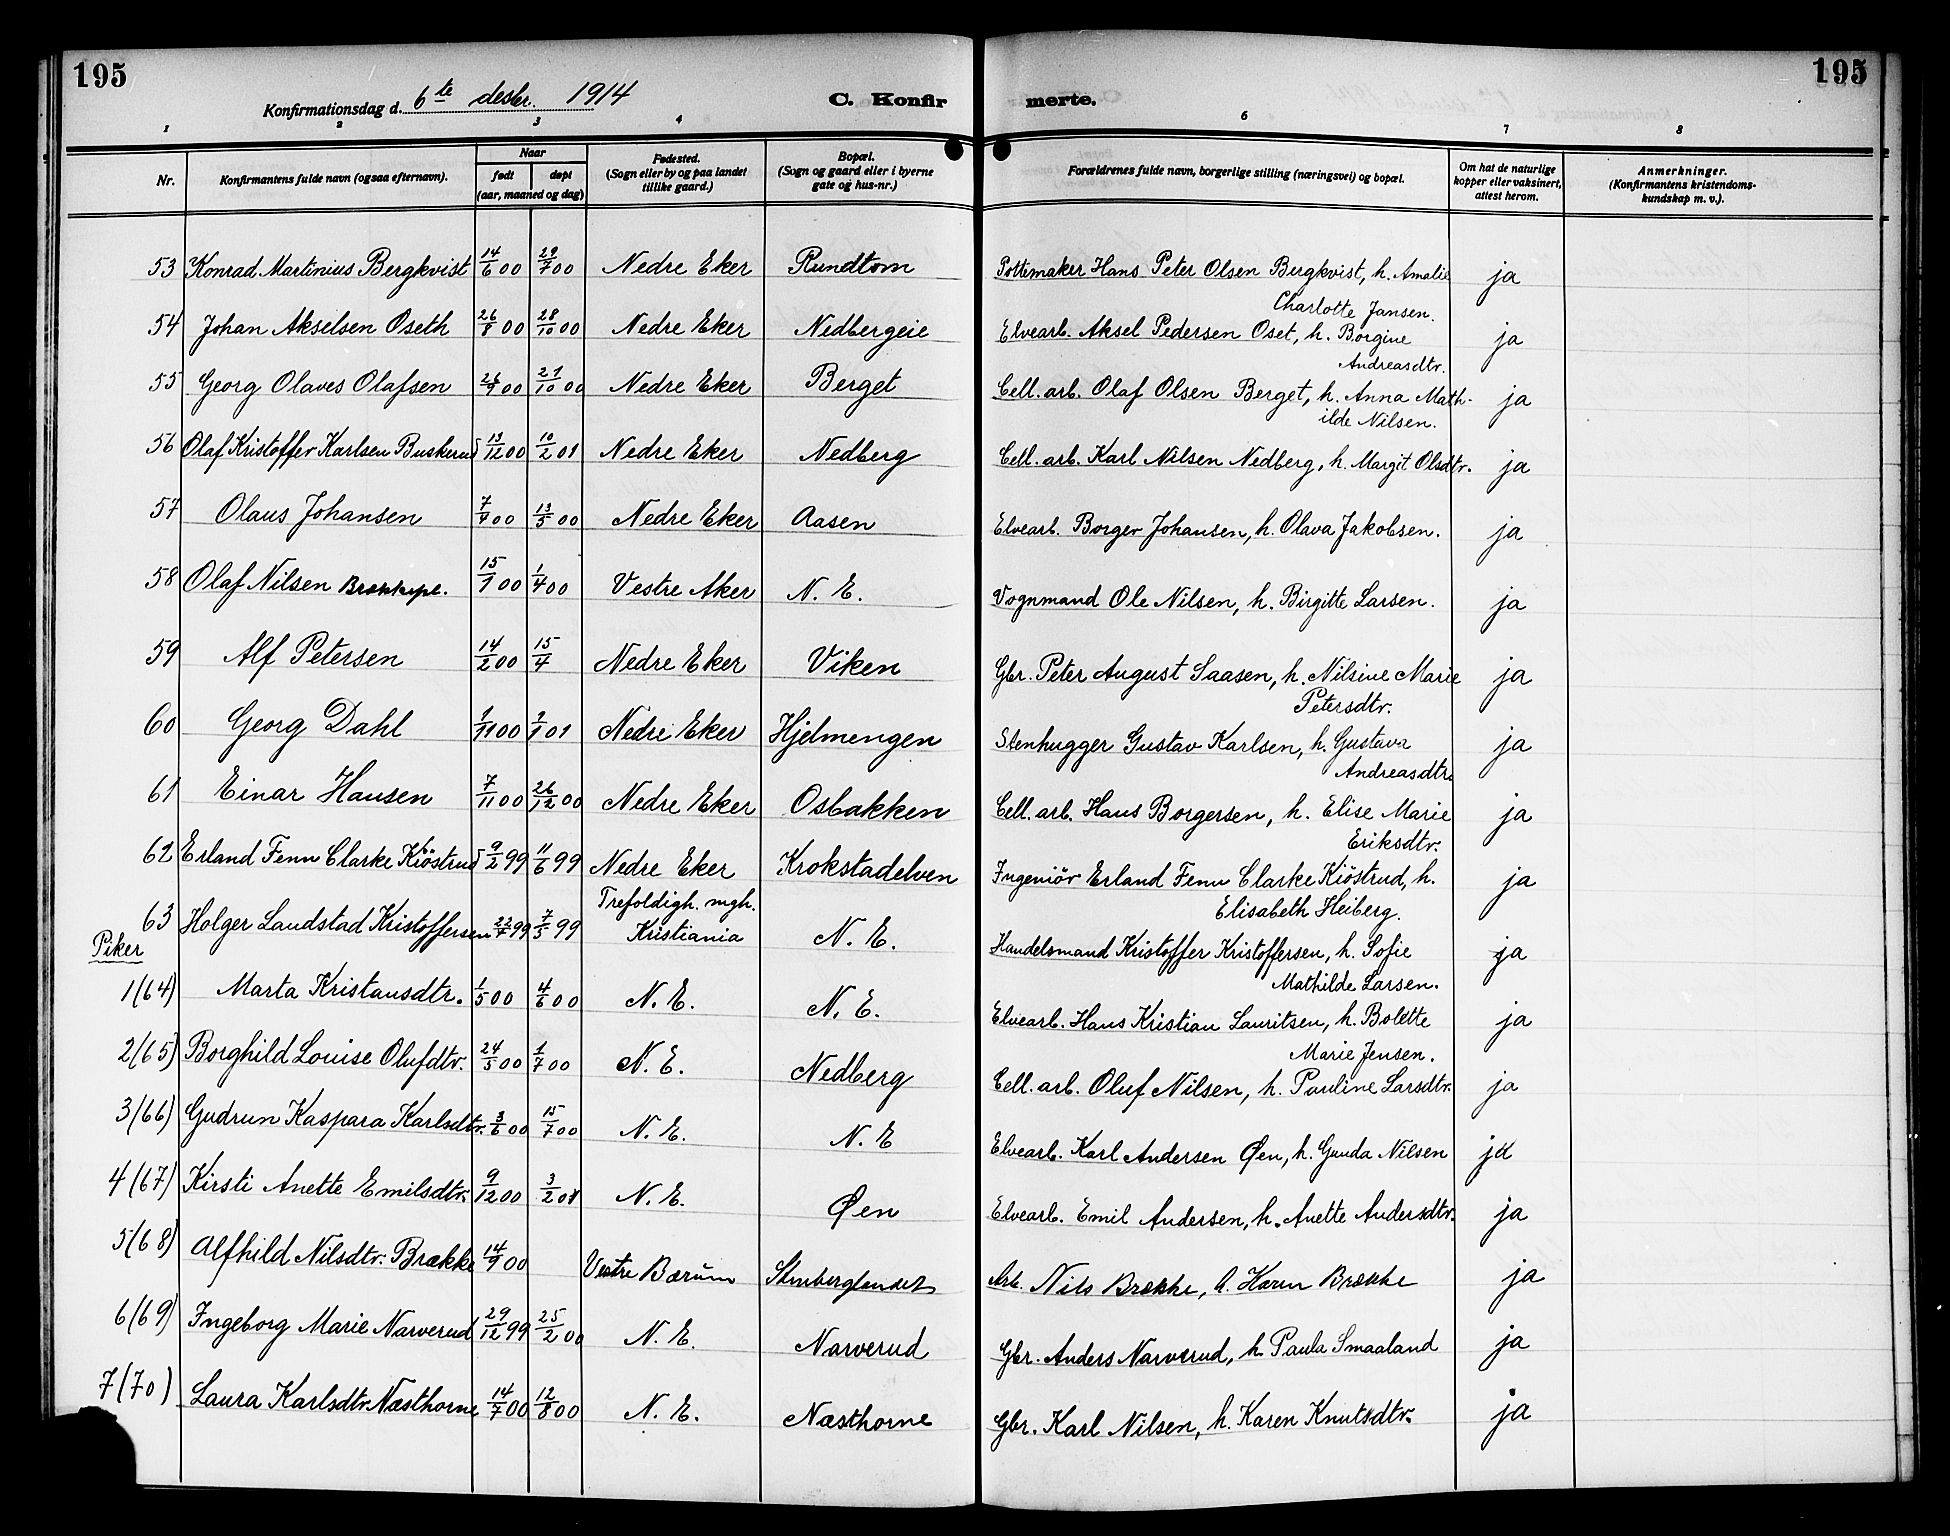 195
195
Konfirmationsdag d. 6te desbr. 1914
C. Konfir
merte.
1 2 3 4 6 7 8
Nr.
Konfirmantens fulde navn (ogsaa efternavn).
Naar
født
døpt
(aar, maaned og dag)
Fødested.
(Sogn eller by og paa landet
tillike gaard.)
Bopæl.
(Sogn og gaard eller i byerne
gate og hus-nr.)
Forældrenes fulde navn, borgerlige stilling (næringsvei) og bopæl.
Om hat de naturlige
kopper eller vaksinert,
attest herom.
Anmerkninger.
(Konfirmantens kristendoms-
kundskap m. v.).
53 Konrad Martinius Bergkvist 14/6 00 29/7 00 Nedre Eker Rundtom Pottemaker Hans Peter Olsen Bergkvist, h. Amalie ja
Charlotte Jansen.
54 Johan Akselsen Oseth 26/8 00 28/10 00 Nedre Eker Nedbergeie Elvearb. Aksel Pedersen Oset, h. Borgine ja
Andreasdtr.
55 Georg Olaves Olafsen 26/9 00 21/10 00 Nedre Eker Berget Cell. arb. Olaf Olsen Berget, h. Anna Math- ja
ilde Nilsen.
56 Olaf Kristoffer Karlsen Buskerud 13/12 00 10/2 01 Nedre Eker Nedberg Cell. arb. Karl Nilsen Nedberg, h. Margit Olsdtr. ja
57 Olaus Johansen 7/4 00 13/5 00 Nedre Eker Aasen Elvearb. Borger Johansen, h. Olava Jakobsen. ja
58 Olaf Nilsen 15/1 00 1/4 00 Vestre Aker N. E. Vognmand Ole Nilsen, h. Birgitte Larsen. ja
59 Alf Petersen 14/2 00 15/4 Nedre Eker Viken Gbr. Peter August Saasen, h. Nilsine Marie ja
Petersdtr.
60 Georg Dahl 1/11 00 1/1 01 Nedre Eker Hjelmengen Stenhugger Gustav Karlsen, h. Gustava ja
Andreasdtr.
61 Einar Hansen 7/11 00 26/12 00 Nedre Eker Osbakken Cell. arb. Hans Borgersen, h. Elise Marie ja
Eriksdtr.
62 Erland Fenn Clarke Kiöstrud 9/2 99 11/6 99 Nedre Eker Krokstadelven Ingeniör Erland Fenn Clarke Kiöstrud, h. ja
Elisabeth Heiberg.
Trefoldigh. mgh.
63 Holger Landstad Kristoffersen 22/1 99 7/5 99 Kristiania N. E. Handelsmand Kristoffer Kristoffersen, h. Sofie ja
Mathilde Larsen.
Piker
1(64) Marta Kristansdtr. 1/5 00 4/6 00 N. E. N. E. Elvearb. Hans Kristian Lauritsen, h. Bolette ja
Marie Jensen.
2(65) Borghild Louise Olufdtr. 24/5 00 1/7 00 N. E. Nedberg Cell. arb. Oluf Nilsen, h. Pauline Larsdtr. ja
3(66) Gudrun Kaspara Karlsdtr. 3/6 00 15/7 00 N. E. N. E Elvearb. Karl Andersen Øen, h. Gunda Nilsen ja
4(67) Kirsti Anette Emilsdtr. 9/12 00 3/2 01 N. E. Øen Elvearb. Emil Andersen, h. Anette Andersdtr. ja
5(68) Alfhild Nilsdtr. Brække 14/9 00 Vestre Bærum Arb. Nils Brække, h. Karen Brække ja
6(69) Ingeborg Marie Narverud 29/12 99 25/2 00 N. E. Narverud Gbr. Anders Narverud, h. Paula Smaaland ja
7(70) Laura Karlsdtr. Næsthorne 14/7 00 12/8 00 N. E. Næsthorne Gbr. Karl Nilsen, h. Karen Knutsdtr. ja